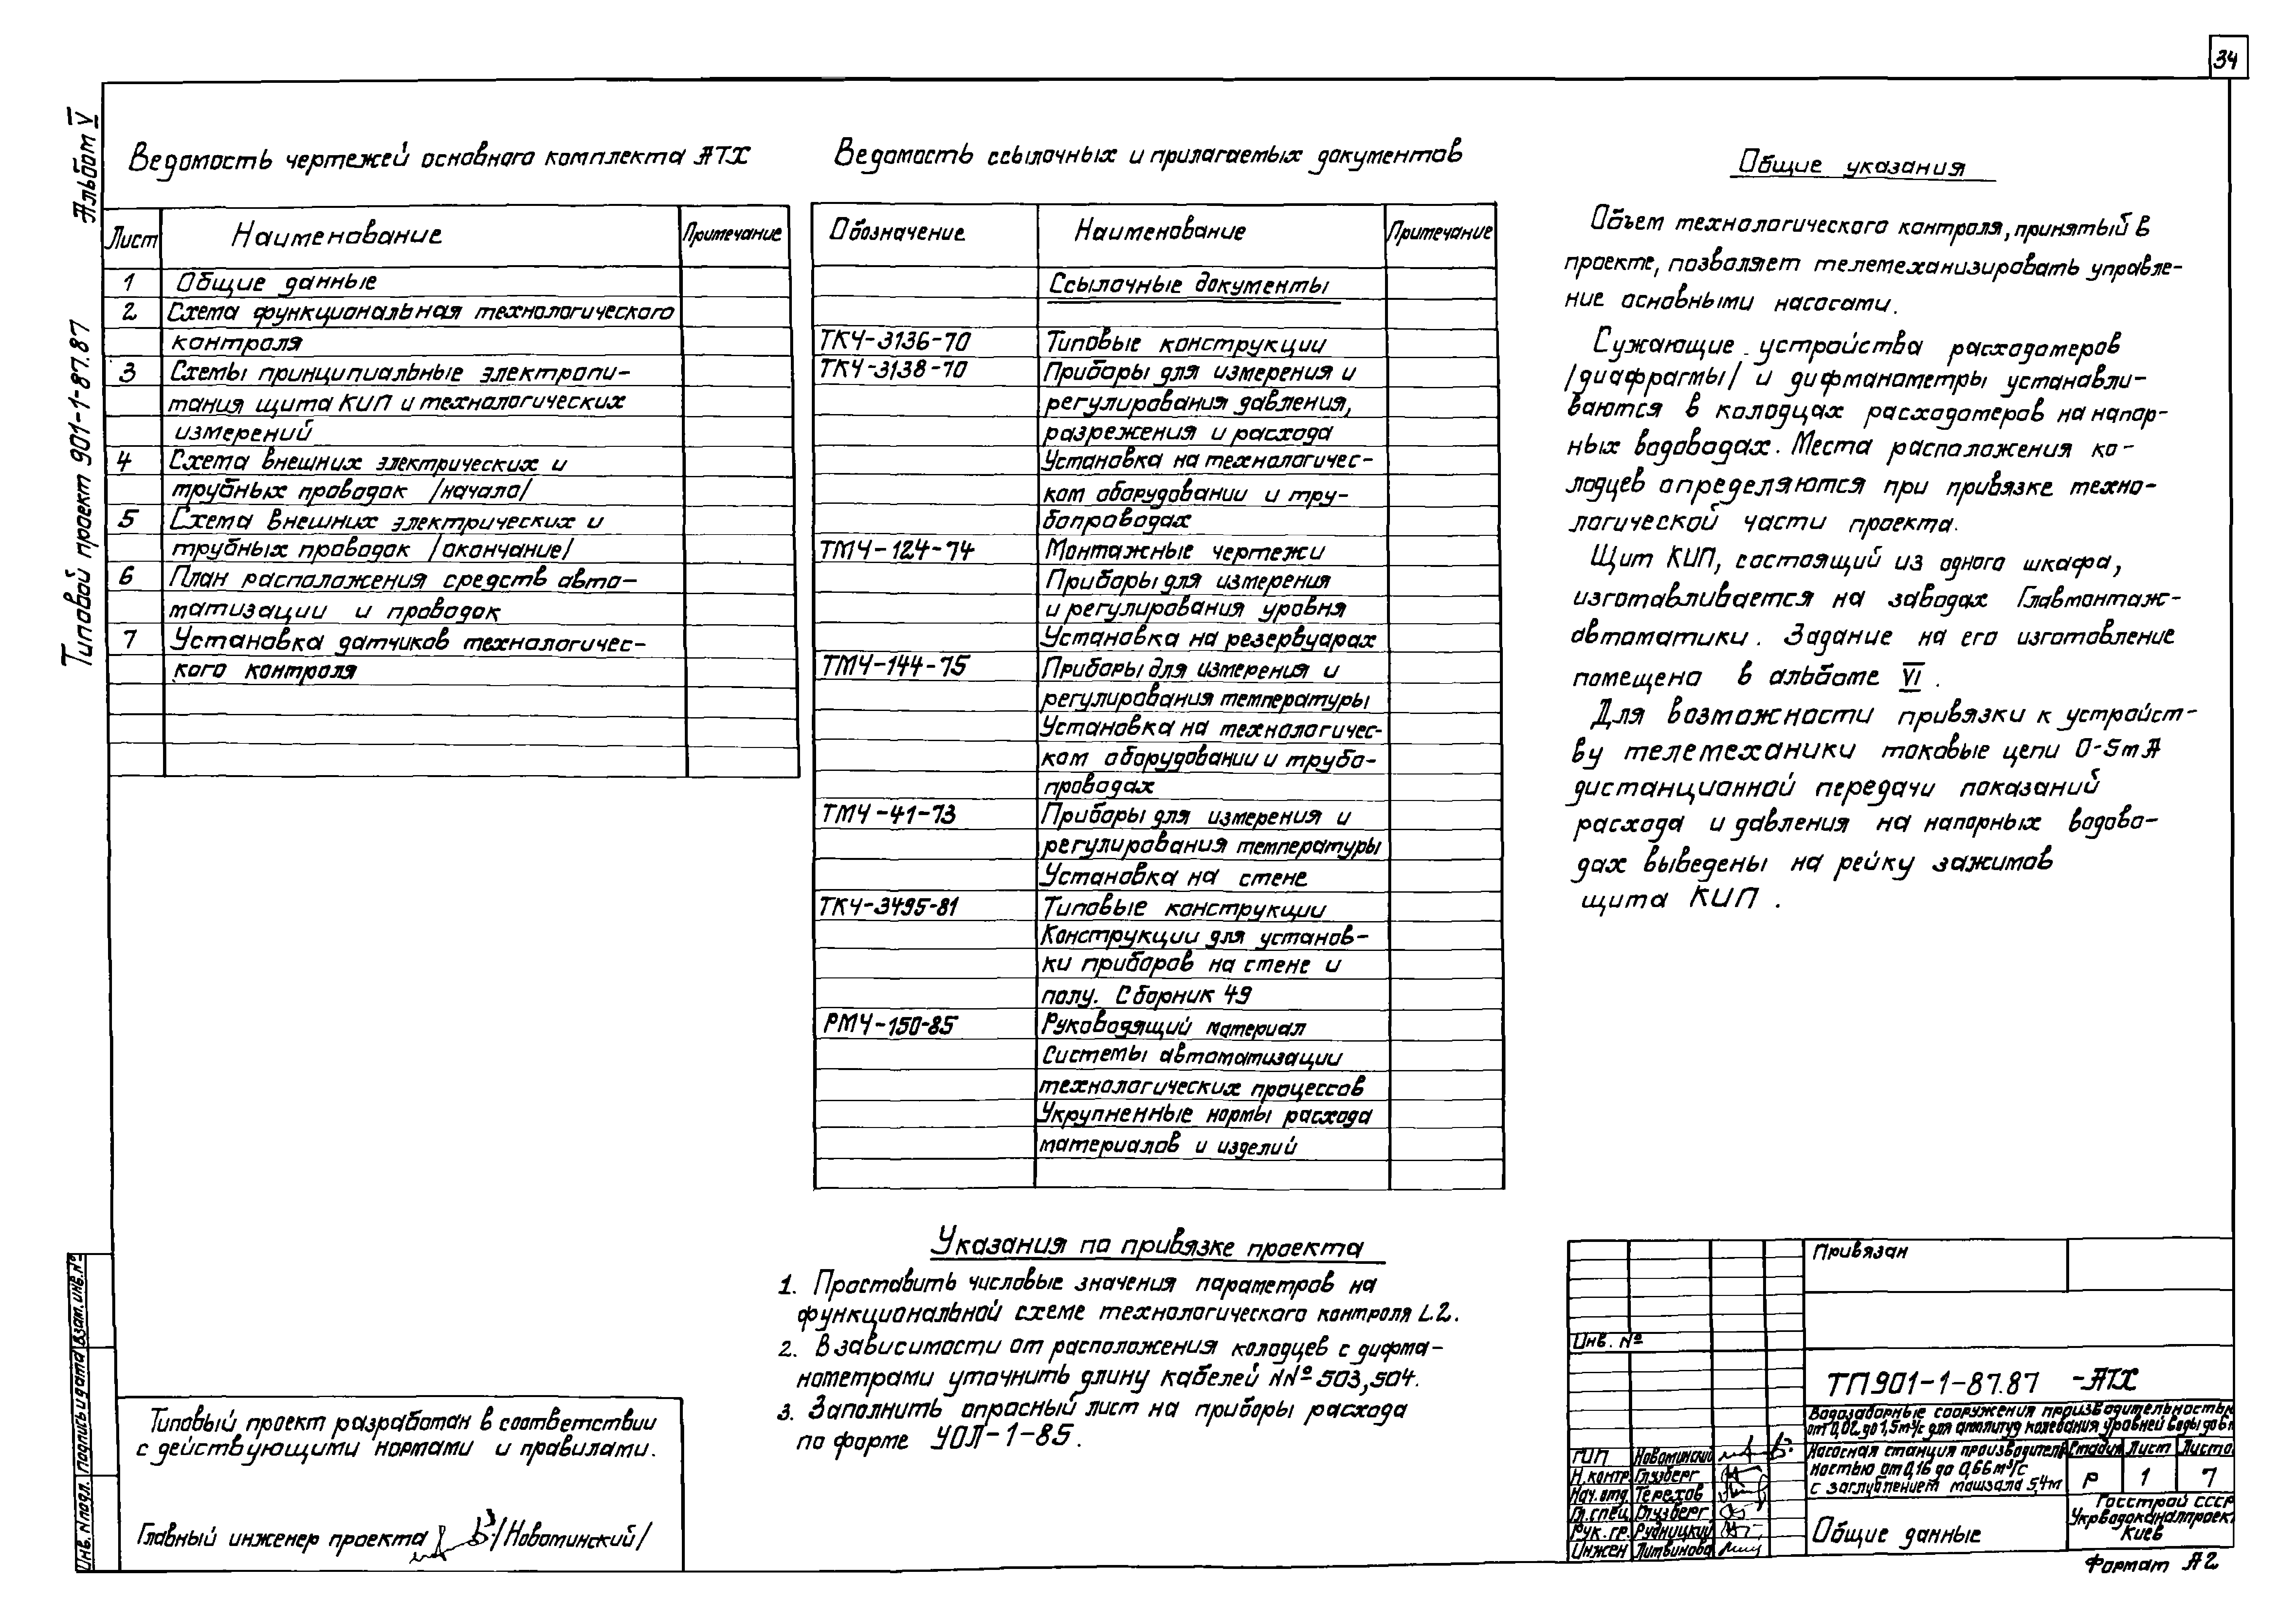 34
Альбом V
Типовой проект 901-1-87.87
Ведомость чертежей основного комплекта АТХ
Лист
Наименование
Примечание
1 Общие данные
2 Схема функциональная технологического
контроля
3 Схемы принципиальные электропи-
тания щита КИП и технологических
измерений
4 Схема внешних электрических и
трубных проводок /начало/
5 Схема внешних электрических и
трубных проводок /окончание/
6 План расположения средств авто-
матизации и проводок
7 Установка датчиков технологичес-
кого контроля
Ведомость ссылочных и прилагаемых документов
Обозначение
Наименование
Примечание
Ссылочные документы
ТКЧ-3136-70 Типовые конструкции
ТКЧ-3138-70 Приборы для измерения и
регулирования давления,
разрежения и расхода
Установка на технологичес-
ком оборудовании и тру-
бопроводах
ТМЧ-124-74 Монтажные чертежи
Приборы для измерения
и регулирования уровня
Установка на резервуарах
ТМЧ-144-75 Приборы для измерения и
регулирования температуры
Установка на технологичес-
ком оборудовании и трубо-
проводах
ТМЧ-41-73 Приборы для измерения и
регулирования температуры
Установка на стене
ТКЧ-3495-81 Типовые конструкции
Конструкции для установ-
ки приборов на стене и
полу. Сборник 49
РМЧ-150-85 Руководящий материал
Системы автоматизации
технологических процессов
Укрупненные нормы расхода
материалов и изделий
Общие указания
Объем технологического контроля, принятый в
проекте, позволяет телемеханизировать управле-
ние основными насосами.
Сужающие устройства расходомеров
/диафрагмы/ и дифманометры устанавли-
ваются в колодцах расходомеров на напор-
ных водоводах. Места расположения ко-
лодцев определяются при привязке техно-
логической части проекта.
Щит КИП, состоящий из одного шкафа,
изготавливается на заводах Главмонтаж-
автоматики. Задание на его изготовление
помещено в альбоме VI.
Для возможности привязки к устройст-
ву телемеханики токовые цепи 0-5mA
дистанционной передачи показаний
расхода и давления на напорных водово-
дах выведены на рейку зажимов
щита КИП.
Указания по привязке проекта
1. Проставить числовые значения параметров на
функциональной схеме технологического контроля L.2.
2. В зависимости от расположения колодцев с дифма-
нометрами уточнить длину кабелей NNº 503,504.
3. Заполнить опросный лист на приборы расхода
по форме УОЛ-1-85.
Типовый проект разработан в соответствии
с действующими нормами и правилами.
Главный инженер проекта /Новоминский/
Инв. N подл. Подпись и дата Взам. инв. №
Привязан
Инв. №
ТП 901-1-87.87 -АТХ
Водозаборные сооружения производительностью
от 0,02 до 1,5м³/с для амплитуд колебания уровней воды до 6м
Насосная станция производитель-
ностью от 0,16 до 0,66м³/с
с заглублением машзала 5,4м
Стадия Лист Листо
Р 1 7
ГИП Новоминский
Н.контр. Глузберг
Нач.отд. Терехов
Гл.спец. Глузберг
Рук.гр. Рудницкий
Инжен Литвинова
Общие данные
Госстрой СССР
Укрводоканалпроект
Киев
Формат А2